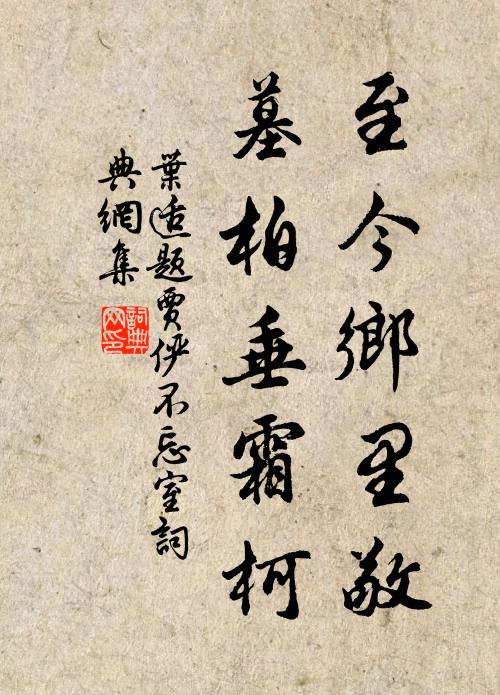 至今鄉里敬
墓柏垂霜柯
葉适題賈俠不忘室詞
典網集
詞典
网印